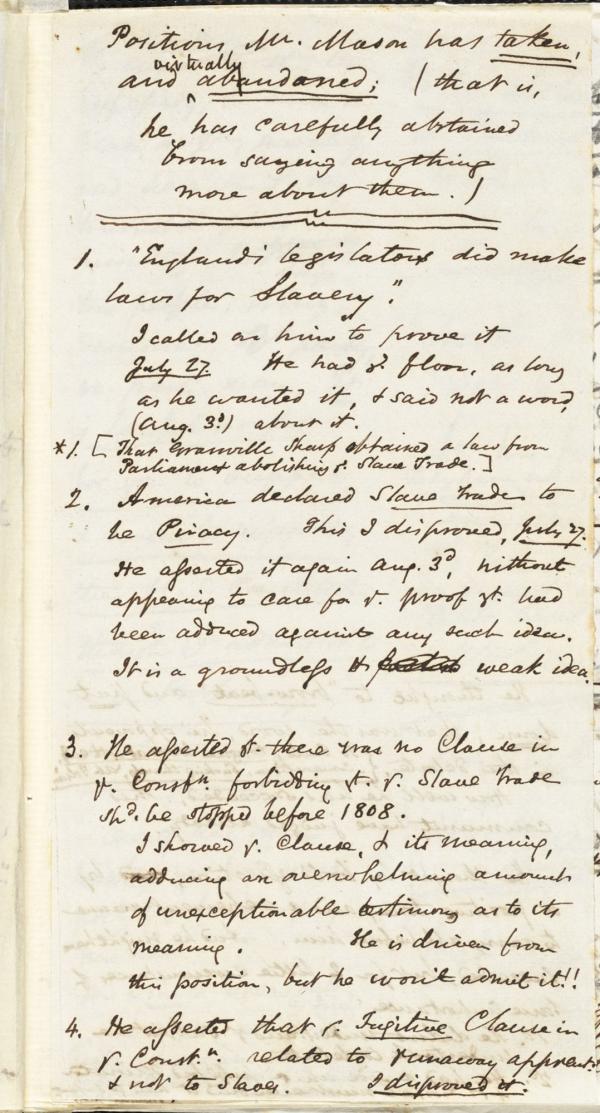 Positions Mr. Mason has taken,
and virtually abandoned; (that is,
he has carefully abstained
from saying anything
more about them.)
1. "England's legislators did make
laws for Slavery".
I called on him to prove it
July 27. He had ye. floor, as long
as he wanted it, & said not a word,
(Aug. 3d.) about it.
*1. [That Granville Sharp obtained a law from
Parliament abolishing ye. Slave Trade.]
2. America declared Slave Trade to
be Piracy. This I disproved, July 27.
He asserted it again Aug. 3d, without
appearing to care for ye. proof yt. had
been adduced against any such idea.
It is a groundless & weak idea.
3. He asserted yt. there was no Clause in
ye. Constn. forbidding yt. ye. Slave Trade
shd. be stopped before 1808.
I showed ye. Clause, & its meaning,
adducing an overwhelming amount
of unexceptionable testimony as to its
meaning. He is driven from
this position, but he won't admit it!!
4. He asserted that ye. Fugitive Clause in
ye. Constn. related to runaway apprent:
& not to Slaves. I disproved it.